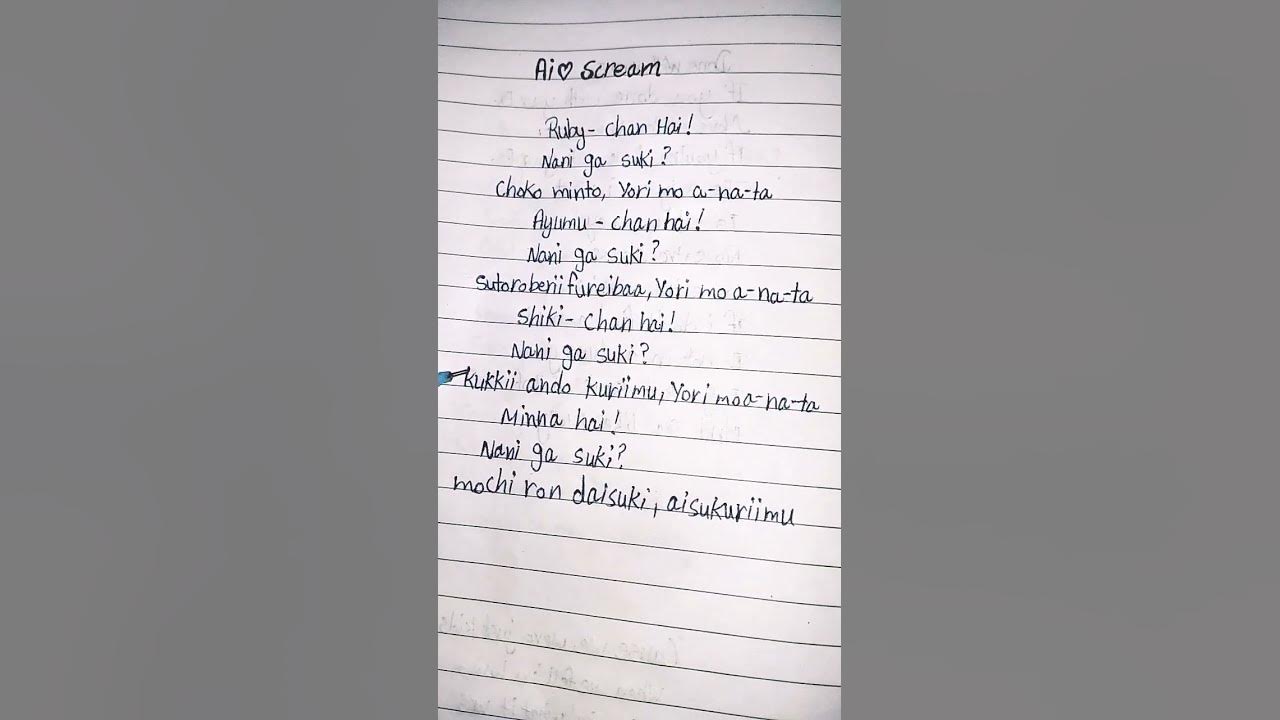 Ai♡ Scream
Ruby- chan Hai!
Nani ga suki?
Choko minto, Yori mo a-na-ta
Ayumu - chan hai!
Nani ga suki?
Sutoroberii fureibaa, Yori mo a-na-ta
Shiki- chan hai!
Nani ga suki?
kukkii ando kuriimu, Yori mo a-na-ta
Minna hai!
Nani ga suki?
mochi ron daisuki, aisukuriimu